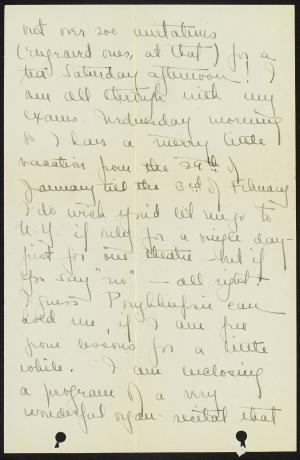 out over 200 invitations
(engraved ones, at that) for a
tea Saturday afternoon! I
am all through with my
exams. Wednesday morning
so I have a merry little
vacation from the 29th of
January till the 3rd of February
I do wish you'd let me go to
N.Y. if only for a single day -
just for one theatre - but if
you say "no" - all right!
I guess Poughkeepsie can
hold me, if I am free
from lessons for a little
while. I am enclosing
a program of a very
wonderful organ-recital that